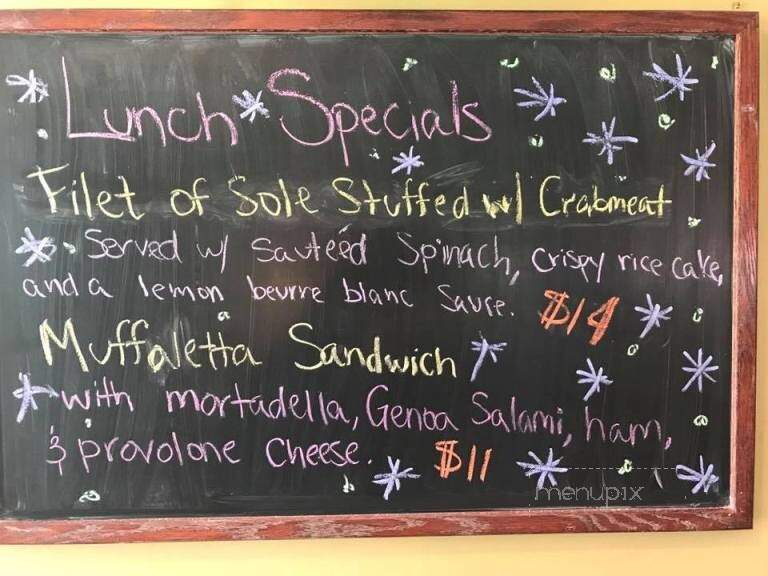 Lunch Specials
Filet of Sole Stuffed w/ Crabmeat
Served w/ Sauteéd Spinach, crispy rice cake,
and a lemon beurre blanc Sauce. $14
Muffaletta Sandwich
with mortadella, Genoa Salami, ham,
& provolone Cheese. $11
menupix